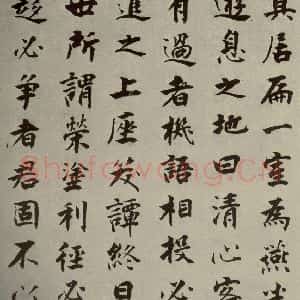 其居扁一室為燕坐
遊息之地曰清心客
有過者機語相投必
進之上座笑譚終日
世所謂榮塗利徑必
趍必争者君固不以
Shufawang.cn